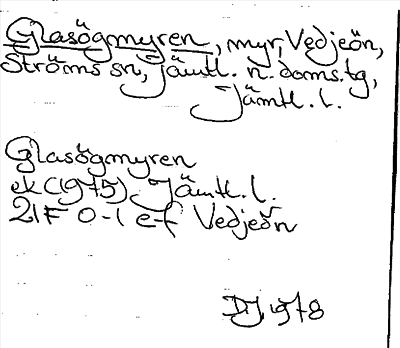 Glasögmyren, myr, Vedjeön,
Ströms sn, Jämtl. n. doms.tg,
Jämtl. l.
Glasögmyren
ek (1975) Jämtl. l.
21F 0-1 e-f Vedjeön
DJ 1978